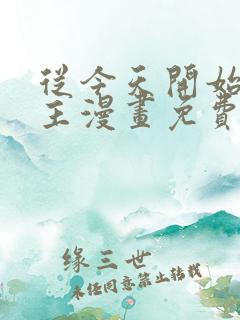 從今天開始
王漫畫免費
緣三世
未经同意禁止转载